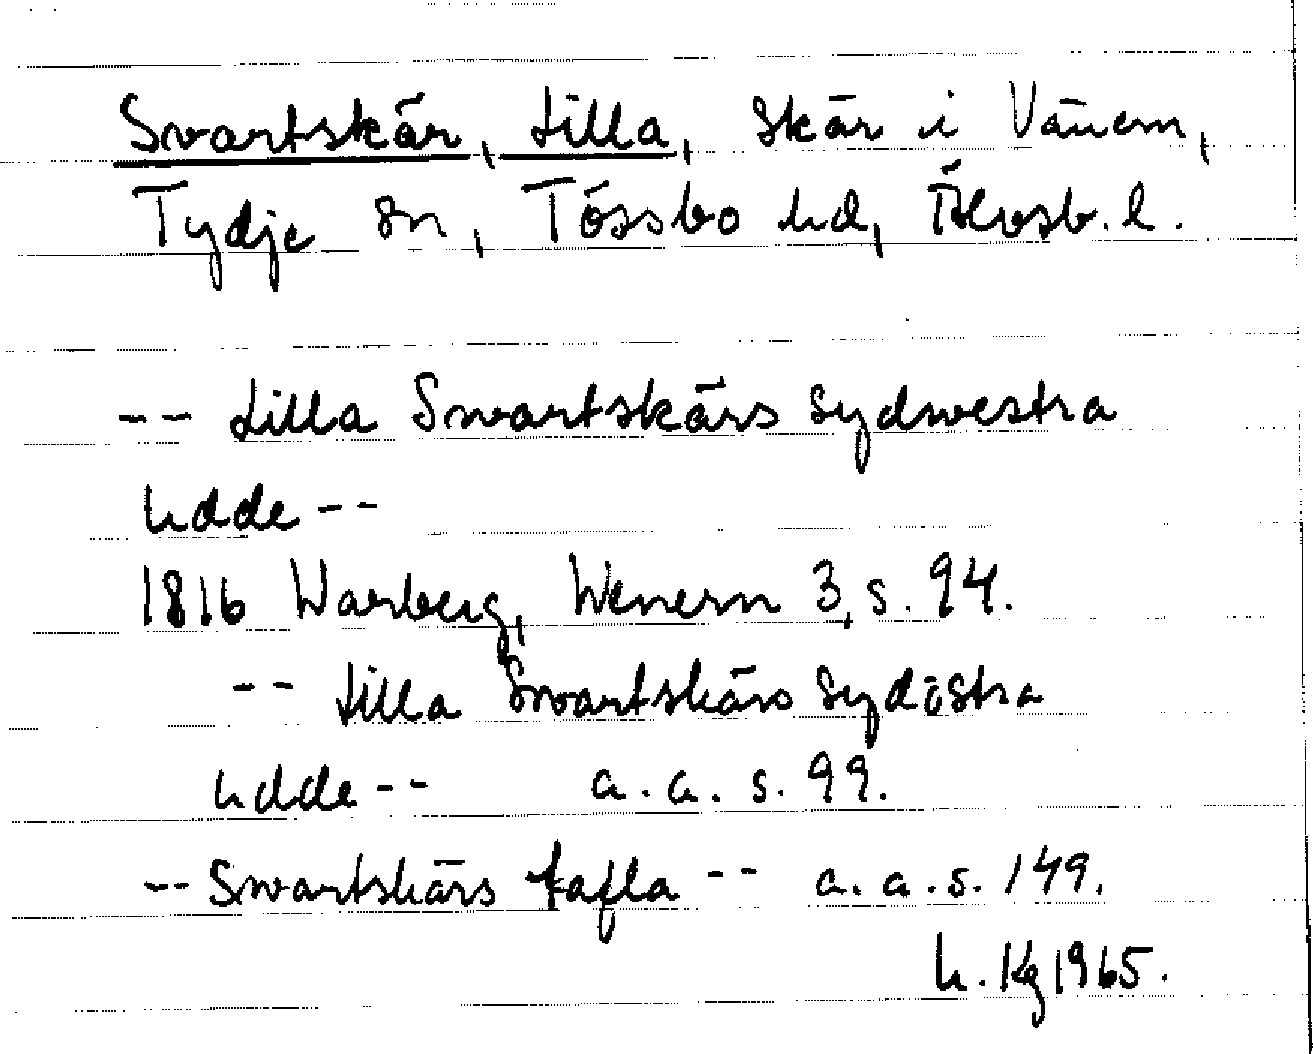 Svartskär, Lilla, skär i Vänern,
Tydje sn, Tössbo hd, Älvsb. l.
-- Lilla Swartskärs sydwestra
udde --
1816 Warberg, Wenern 3, s. 94.
-- Lilla Swartskärs sydöstra
udde -- a.a. s. 99.
-- Swartskärs tafla -- a.a.s. 149.
h. Kg 1965.